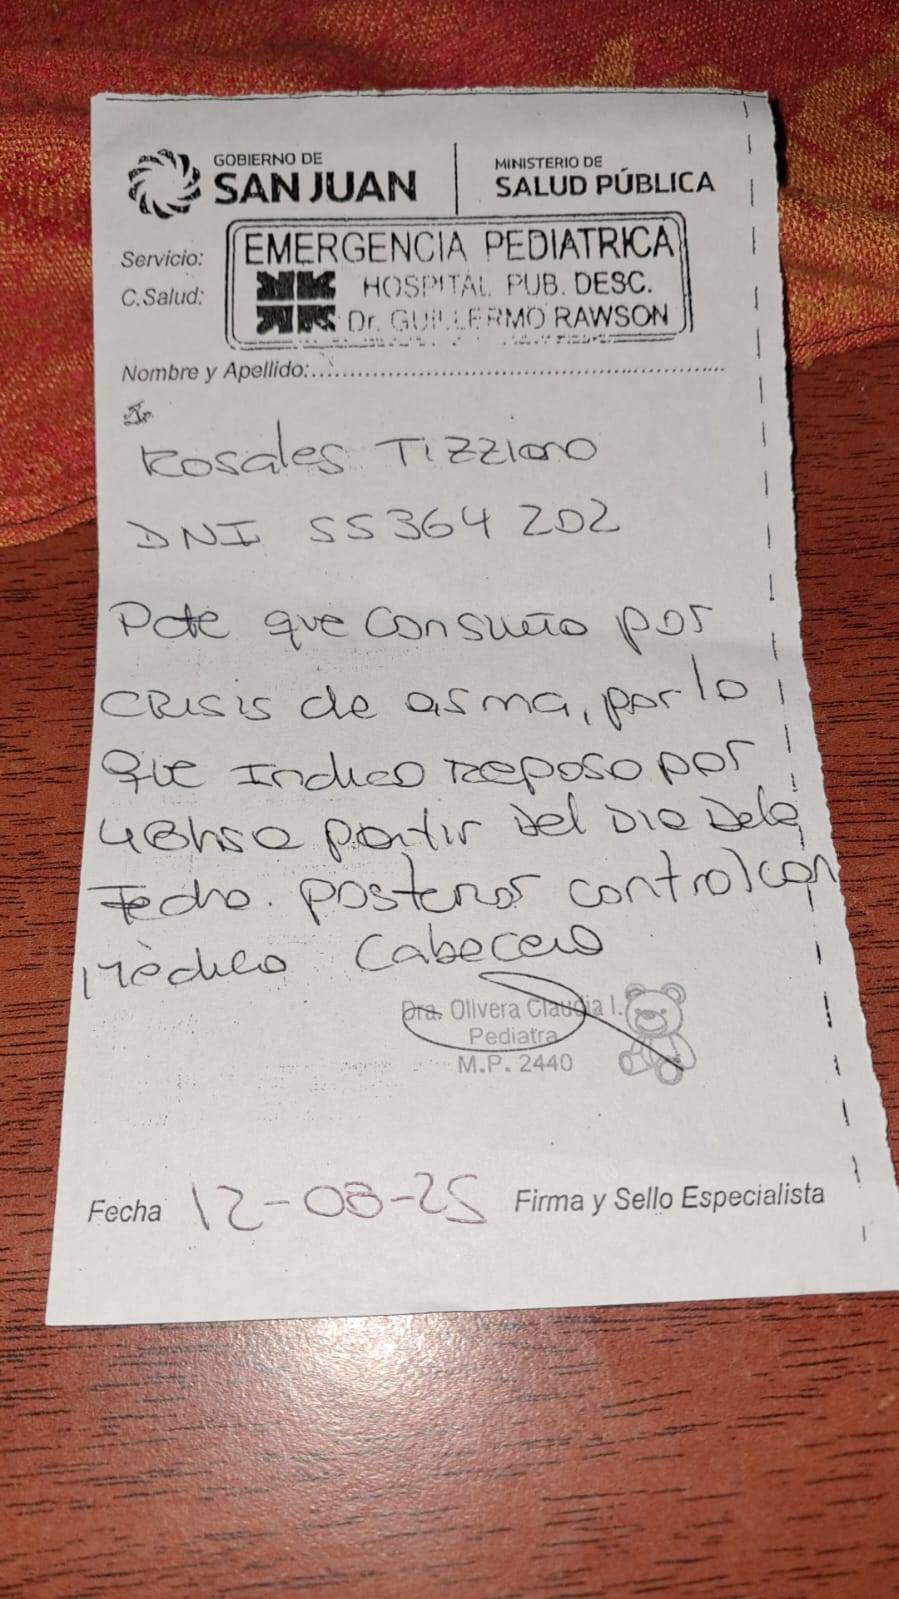 GOBIERNO DE
SAN JUAN
MINISTERIO DE
SALUD PÚBLICA
Servicio:
C.Salud:
EMERGENCIA PEDIATRICA
HOSPITAL PUB. DESC.
Dr. GUILLERMO RAWSON
Nombre y Apellido:
Rosales Tizziano
DNI 55364202
Pcte que consulto por
crisis de asma, por lo
que Indico Reposo por
48hs a partir del Dia Dela
Fecha. Posterior control con
Médico Cabecera
Dra. Olivera Claudia I.
Pediatra
M.P. 2440
Fecha 12-08-25 Firma y Sello Especialista